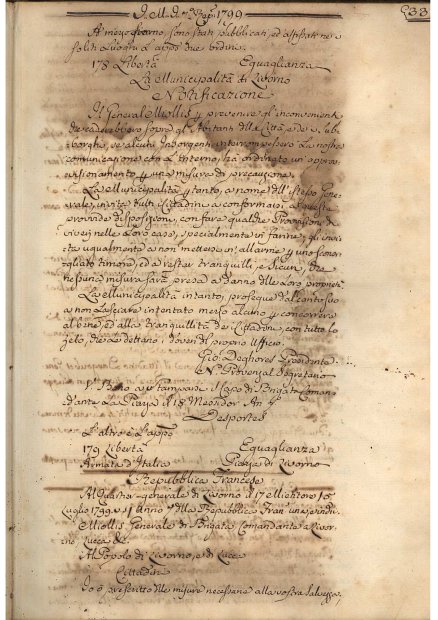 1799
533
A mezzo giorno, sono stati pubblicati, ed affissi ne
soliti Luoghi L'appo due ordini.
178 Libertà Eguaglianza
La Municipalità di Livorno
Notificazione
Il General Miollis p prevenire gl'inconvenienti
che caderebbero sopra gl'Abitanti della Città, e de Sub-
borghi, se alcuni Insorgenti interrompessero la nostra
comunicazione con l'Interno, ha ordinato un approv-
visionamento p una misura di precauzione.
La Municipalità p tanto, a nome dell'istesso Gene-
rale, invita tutti i Cittadini a conformarsi a questa
provvida disposizione, con fare qualche Provvisione di
viveri nelle Loro case, specialmente in farine; gl'invi-
ta ugualmente a non mettersi in allarme p uno scon-
sigliato timore, ed a restar tranquilli, e sicuri, che
nessuna misura sarà presa a danno delle Loro proprietà
La Municipalità intanto, prosegue dal canto suo
a non Lasciare intentato mezzo alcuno p concorrere
al bene, ed alla tranquillità de Cittadini, con tutto lo
zelo, che Le dettano i doveri del proprio Uffizio.
Gio: Deghores Presidente
N. Provenzal Segretario
V. Buono a stamparsi Il Capo di Brigata Coman-
dante La Piazza il 18 Messidor An.
Desportes
L'altro è L'appo
179 Libertà Eguaglianza
Armata d'Italia Piazza di Livorno
Repubblica Francese
Al Quartier-generale di Livorno il 17 Messidoro
Luglio 1799 Anno della Repubblica Fran.
Miollis Generale di Brigata Comandante a Livor-
no, Lucca &c.
Al Popolo di Livorno, e di Lucca
Cittadini
Io ò prescritto Le misure necessarie alla vostra salvezza,